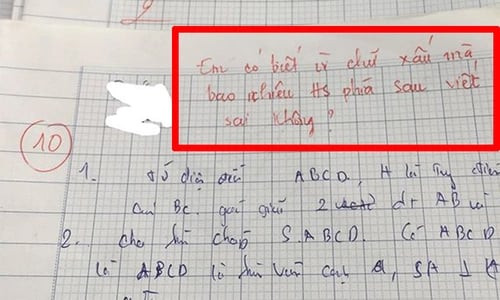 Em có biết vì chữ xấu mà
bao nhiêu HS phía sau viết
sai không?
10
1. Tứ diện đều ABCD, H là Trung điểm
của BC. góc giữa 2 dt AB và
2. Cho hình chóp S.ABCD. Có ABCD
là ABCD là hình vuông cạnh a, SA ⊥